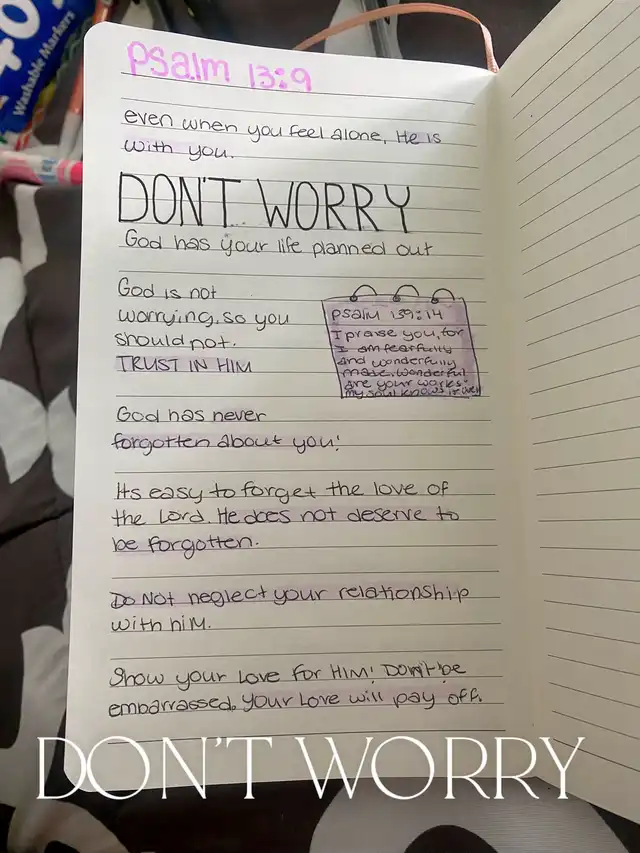 40
Washable Markers
Psalm 13:9
even when you feel alone, He is
with you.
DON'T WORRY
God has your life planned out
God is not
worrying, so you
should not.
TRUST IN HIM
Psalm 139:14
I praise you, for
I am fearfully
and wonderfully
made, wonderful
are your works.
my soul knows it well
God has never
forgotten about you!
Its easy to forget the love of
the Lord. He does not deserve to
be forgotten.
Do Not neglect your relationship
with hiM.
Show your Love for HIM! DON't be
embarrassed, your Love will pay off.
DON'T WORRY